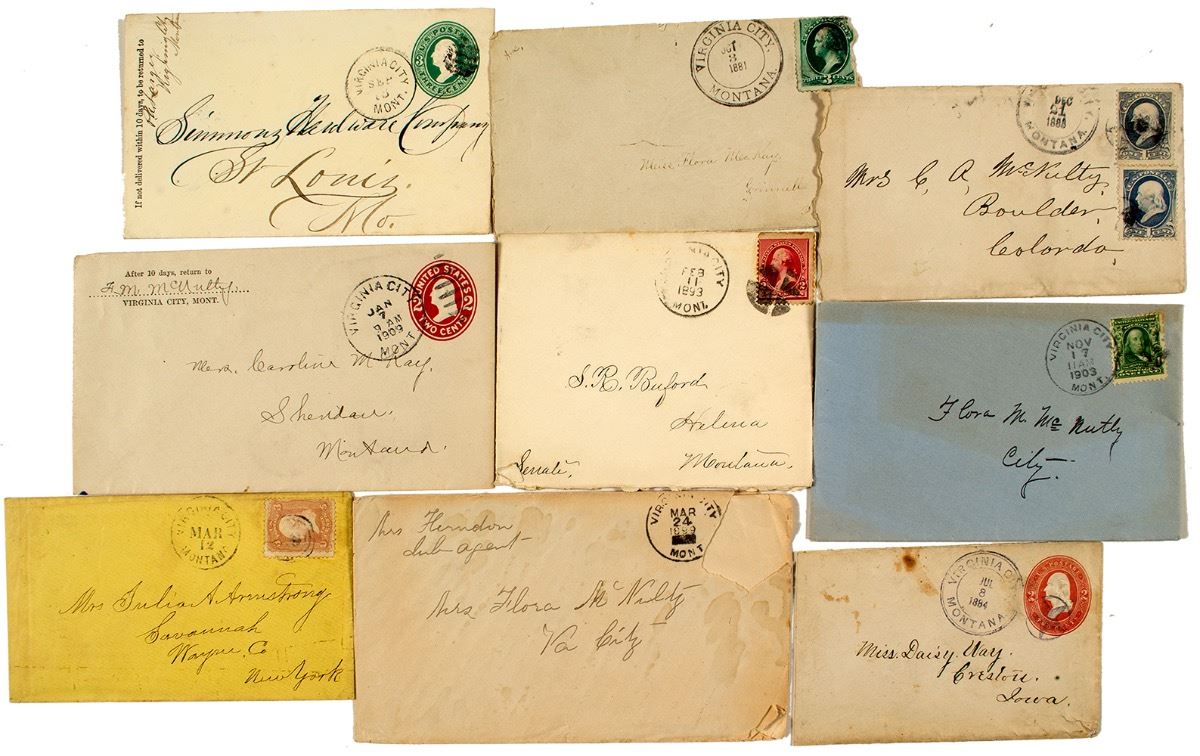 If not delivered within 10 days, to be returned to
VIRGINIA CITY
SEP
MONT.
U.S. POSTAGE
THREE CENTS
Simmons Hardware Company
St Louis.
Mo.
VIRGINIA CITY,
OCT
3
1881
MONTANA.
3
Miss Flora McKay,
Grinnell
DEC
21
1888
MONTANA.
Mrs C. A. McNulty,
Boulder,
Colordo,
After 10 days, return to
F. M. McNulty
VIRGINIA CITY, MONT.
VIRGINIA CITY
JAN
7
9 AM
1909
MONT.
UNITED STATES
2 2
TWO CENTS
Mrs. Caroline McKay.
Sheridan.
Montana.
VIRGINIA CITY
FEB
11
1893
MONT.
S. R. Buford
Helena
Senate, Montana.
VIRGINIA CITY
NOV
17
11 AM
1903
MONT.
Flora M. McNulty
City.
VIRGINIA CITY
MAR
12
MONTANA
Mrs Julia A Armstrong
Savannah
Wayne, Co
New York
Mrs Herndon
Sub agent
VIRGINIA CITY
MAR
24
1899
MONT
Mrs Flora McNulty
Va City
VIRGINIA CITY
JUL
8
1884
MONTANA.
Miss. Daisy Way.
Creston.
Iowa.